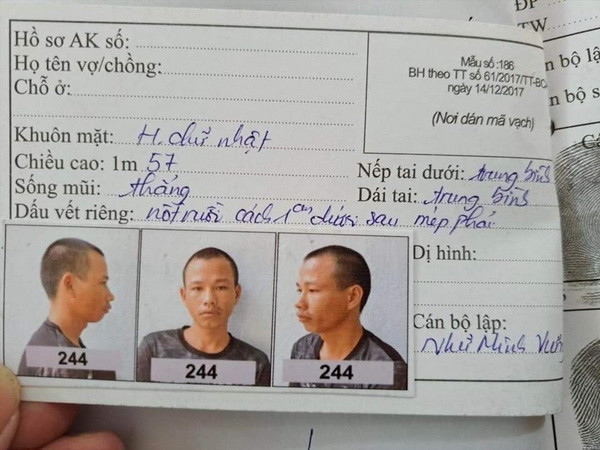 ĐP
TW
Hồ sơ AK số:
Họ tên vợ/chồng:
Chỗ ở:
Mẫu số :186
BH theo TT số 61/2017/TT-BCA
ngày 14/12/2017
(Nơi dán mã vạch)
n bộ lập
n bộ s
Khuôn mặt: H. chữ nhật
Chiều cao: 1m 57
Nếp tai dưới: trung bình
Sống mũi: thẳng
Dái tai: trung bình
Dấu vết riêng: nốt ruồi cách 1cm dưới sau mép phải
Dị hình:
Cán bộ lập:
Như Minh Vương
244
244
244